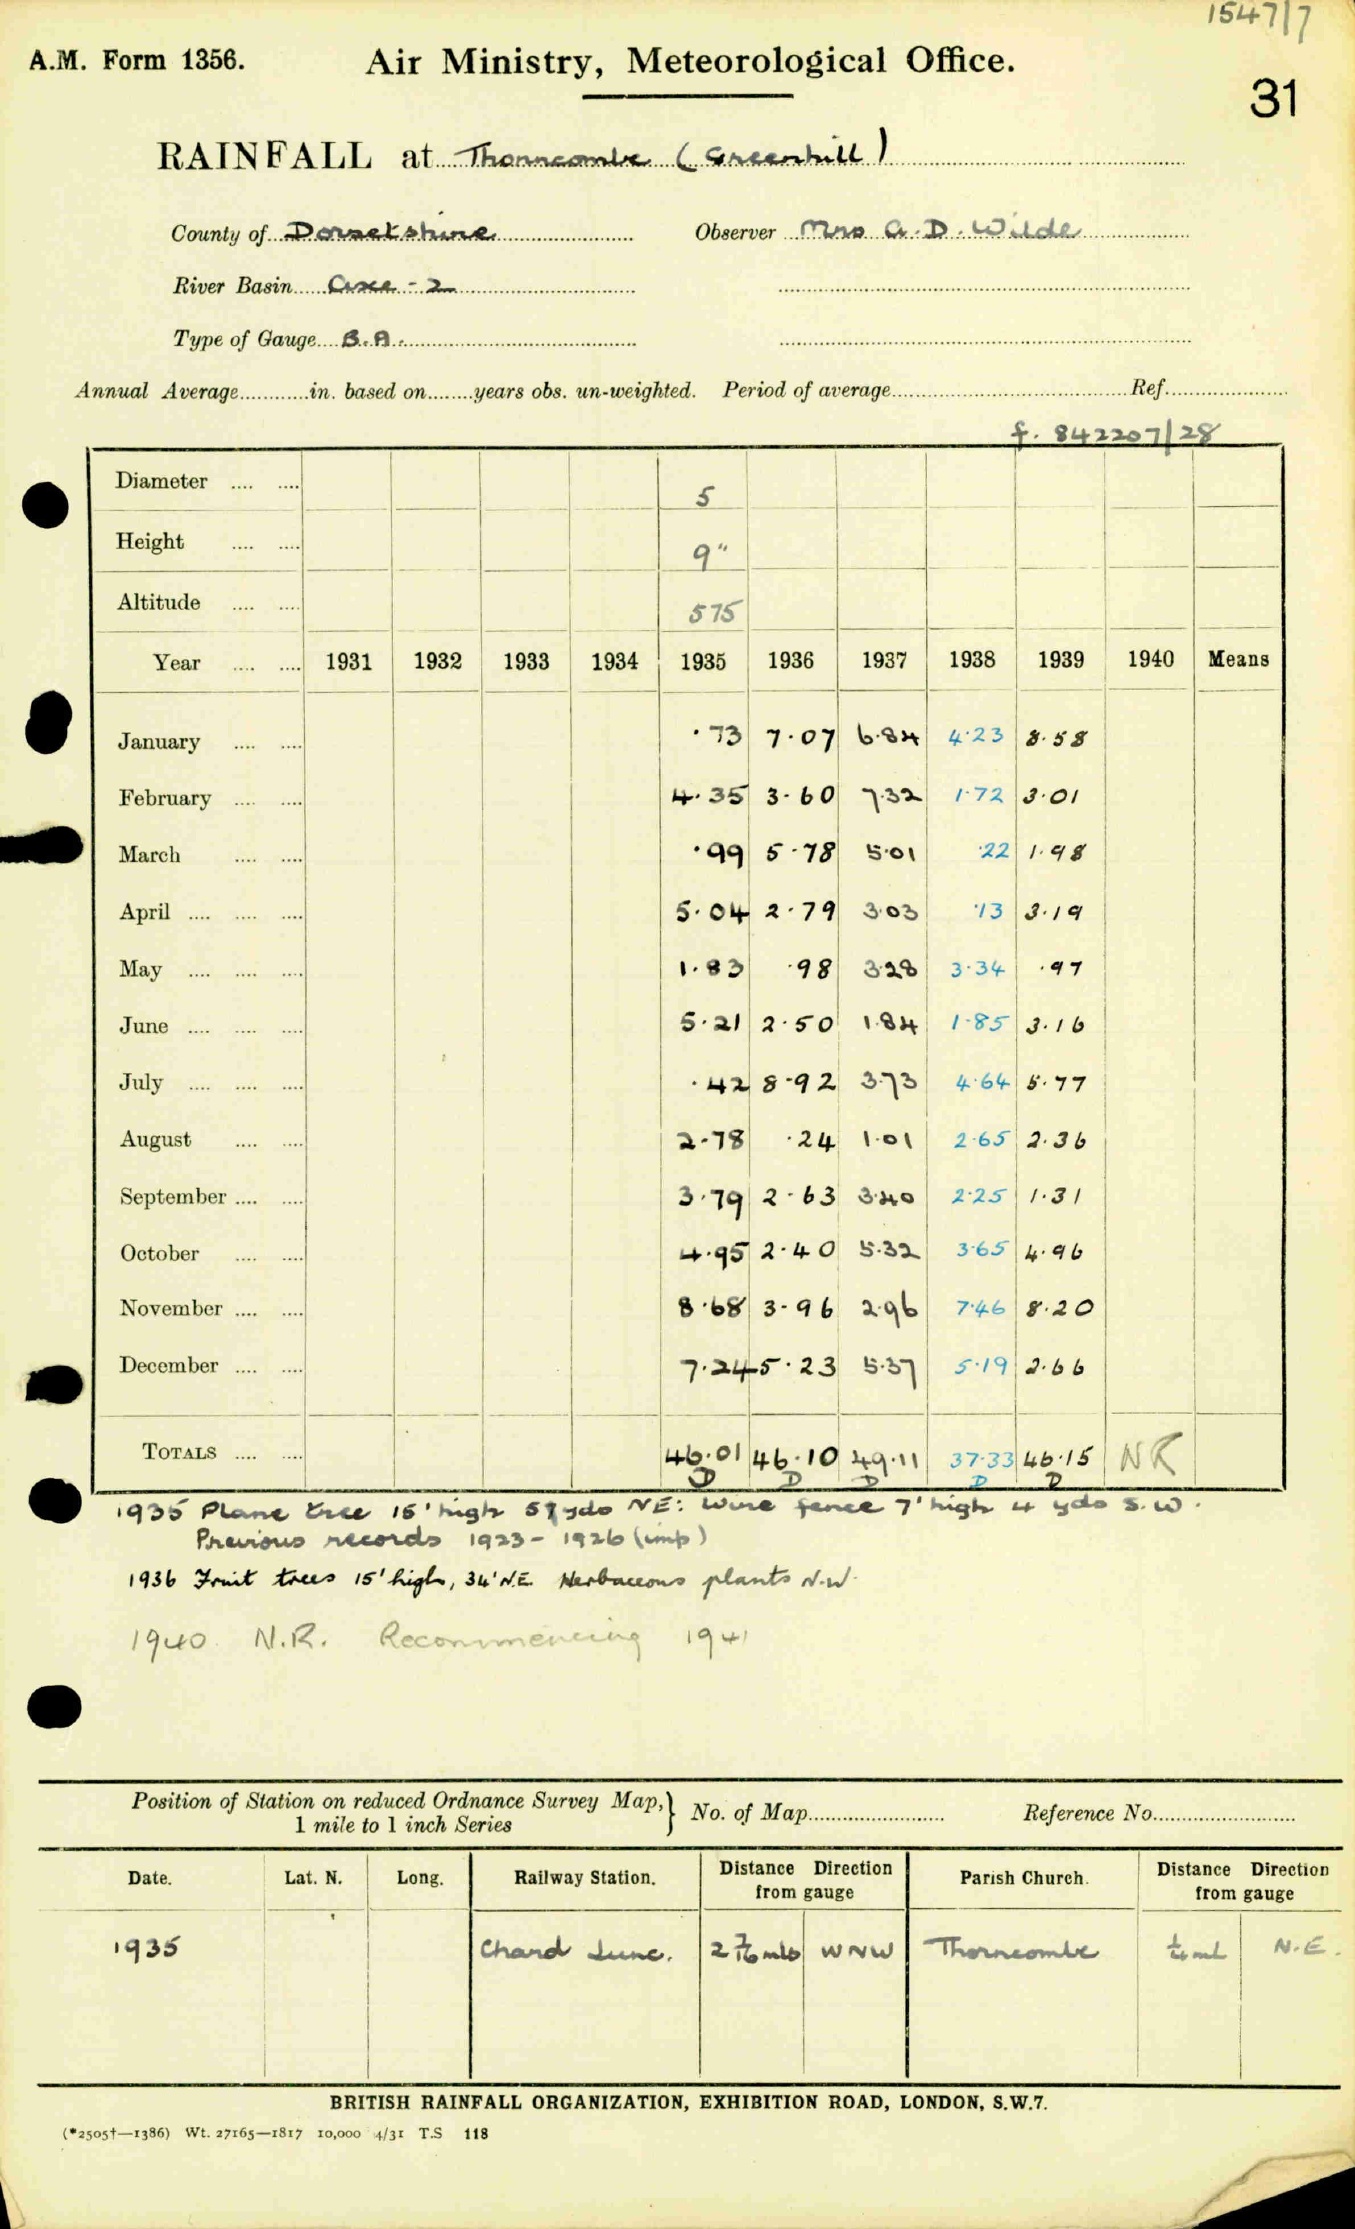 1547/7
A.M. Form 1356. Air Ministry, Meteorological Office.
31
RAINFALL at Thorncombe (Greenhill)
County of Dorsetshire Observer Mrs A. D. Wilde
River Basin Axe - 2
Type of Gauge B.A.
Annual Average in. based on years obs. un-weighted. Period of average Ref.
f. 842207/28
Diameter 5
Height 9"
Altitude 575
Year 1931 1932 1933 1934 1935 1936 1937 1938 1939 1940 Means
January ·73 7·07 6·84 4·23 8·58
February 4·35 3·60 7·32 1·72 3·01
March ·99 5·78 5·01 ·22 1·98
April 5·04 2·79 3·03 ·13 3·19
May 1·83 ·98 3·28 3·34 ·97
June 5·21 2·50 1·84 1·85 3·16
July ·42 8·92 3·73 4·64 5·77
August 2·78 ·24 1·01 2·65 2·36
September 3·79 2·63 3·40 2·25 1·31
October 4·95 2·40 5·32 3·65 4·96
November 8·68 3·96 2·96 7·46 8·20
December 7·24 5·23 5·37 5·19 2·66
TOTALS 46·01 46·10 49·11 37·33 46·15 NR
D D D D D
1935 Plane tree 15' high yds NE: Wire fence 7' high 4 yds S.W.
Previous records 1923 - 1926 (imp)
1936 Fruit trees 15' high, 34' N.E. Herbaceous plants N.W.
1940 N.R. Recommencing 1941
Position of Station on reduced Ordnance Survey Map,} No. of Map Reference No.
1 mile to 1 inch Series
Date. Lat. N. Long. Railway Station. Distance Direction from gauge Parish Church. Distance Direction from gauge
1935 Chard Junc. 2 7/16 mls WNW Thorncombe 1/4 ml N.E.
BRITISH RAINFALL ORGANIZATION, EXHIBITION ROAD, LONDON, S.W.7.
(*2505†—1386) Wt. 27165—1817 10,000 4/31 T.S 118